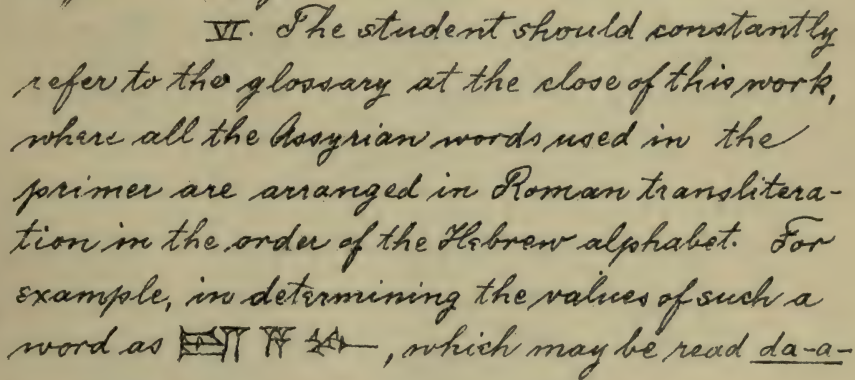 VI. The student should constantly
refer to the glossary at the close of this work,
where all the Assyrian words used in the
primer are arranged in Roman translitera-
tion in the order of the Hebrew alphabet. For
example, in determining the values of such a
word as 𒁕 𒀀 𒉡, which may be read da-a-